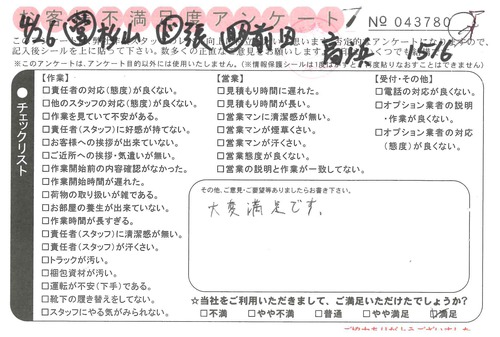 お客様不満足度アンケート
No 043780
4/26 営 杉山
前田
高任
1516
記入後シールを上に貼って下さい。
※このアンケートは、アンケート目的以外には使用しません。
チェックリスト
【作業】
□責任者の対応(態度)が良くない。
□他のスタッフの対応(態度)が良くない。
□作業を見ていて不安がある。
□責任者(スタッフ)に好感が持てない。
□お客様への挨拶が出来ていない。
□ご近所への挨拶・気遣いが無い。
□作業開始前の内容確認がなかった。
□作業開始時間が遅れた。
□荷物の取り扱いが雑である。
□お部屋の養生が出来ていない。
□作業時間が長すぎる。
□責任者(スタッフ)に清潔感が無い。
□責任者(スタッフ)が汗くさい。
□トラックが汚い。
□梱包資材が汚い。
□運転が不安(下手)である。
□靴下の履き替えをしてない。
□スタッフにやる気がみられない。
【営業】
□見積もり時間に遅れた。
□見積もり時間が長い。
□営業マンに清潔感が無い。
□営業マンが煙草くさい。
□営業マンが汗くさい。
□営業態度が良くない。
□営業の説明と作業が一致してない。
【受付・その他】
□電話の対応が良くない。
□オプション業者の説明
・作業が良くない。
□オプション業者の対応
(態度)が良くない。
その他、ご意見・ご要望等ありましたらお書き下さい。
大変満足です。
☆当社をご利用いただきまして、ご満足いただけたでしょうか?
□不満 □やや不満 □普通 □やや満足 □満足
ご協力ありがとうございました